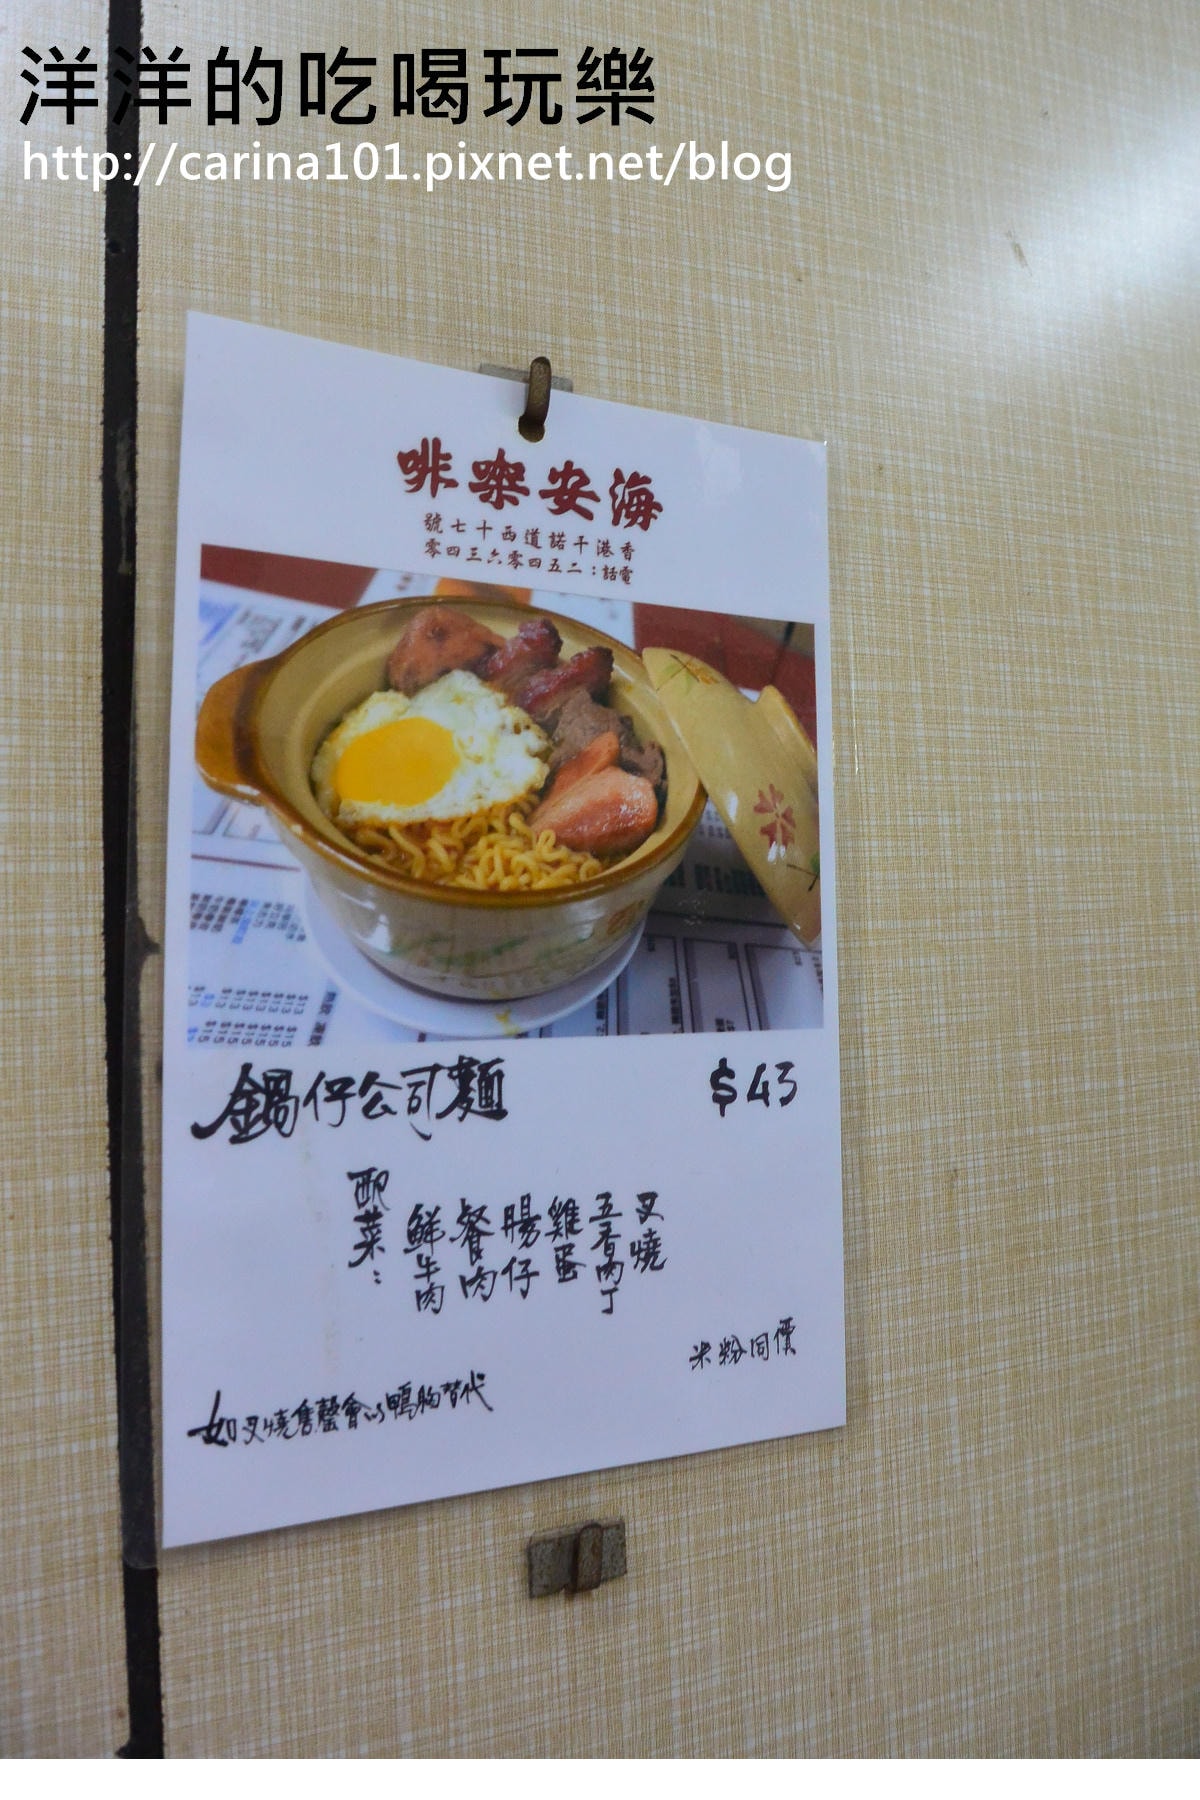 洋洋的吃喝玩樂
http://carina101.pixnet.net/blog
海安㗎啡
香港干諾道西十七號
電話：二五四零六三四零
鍋仔公司麵
$43
配菜：
鮮牛肉
餐肉
腸仔
雞蛋
五香肉丁
叉燒
米粉同價
如叉燒售罄會以鴨胸替代